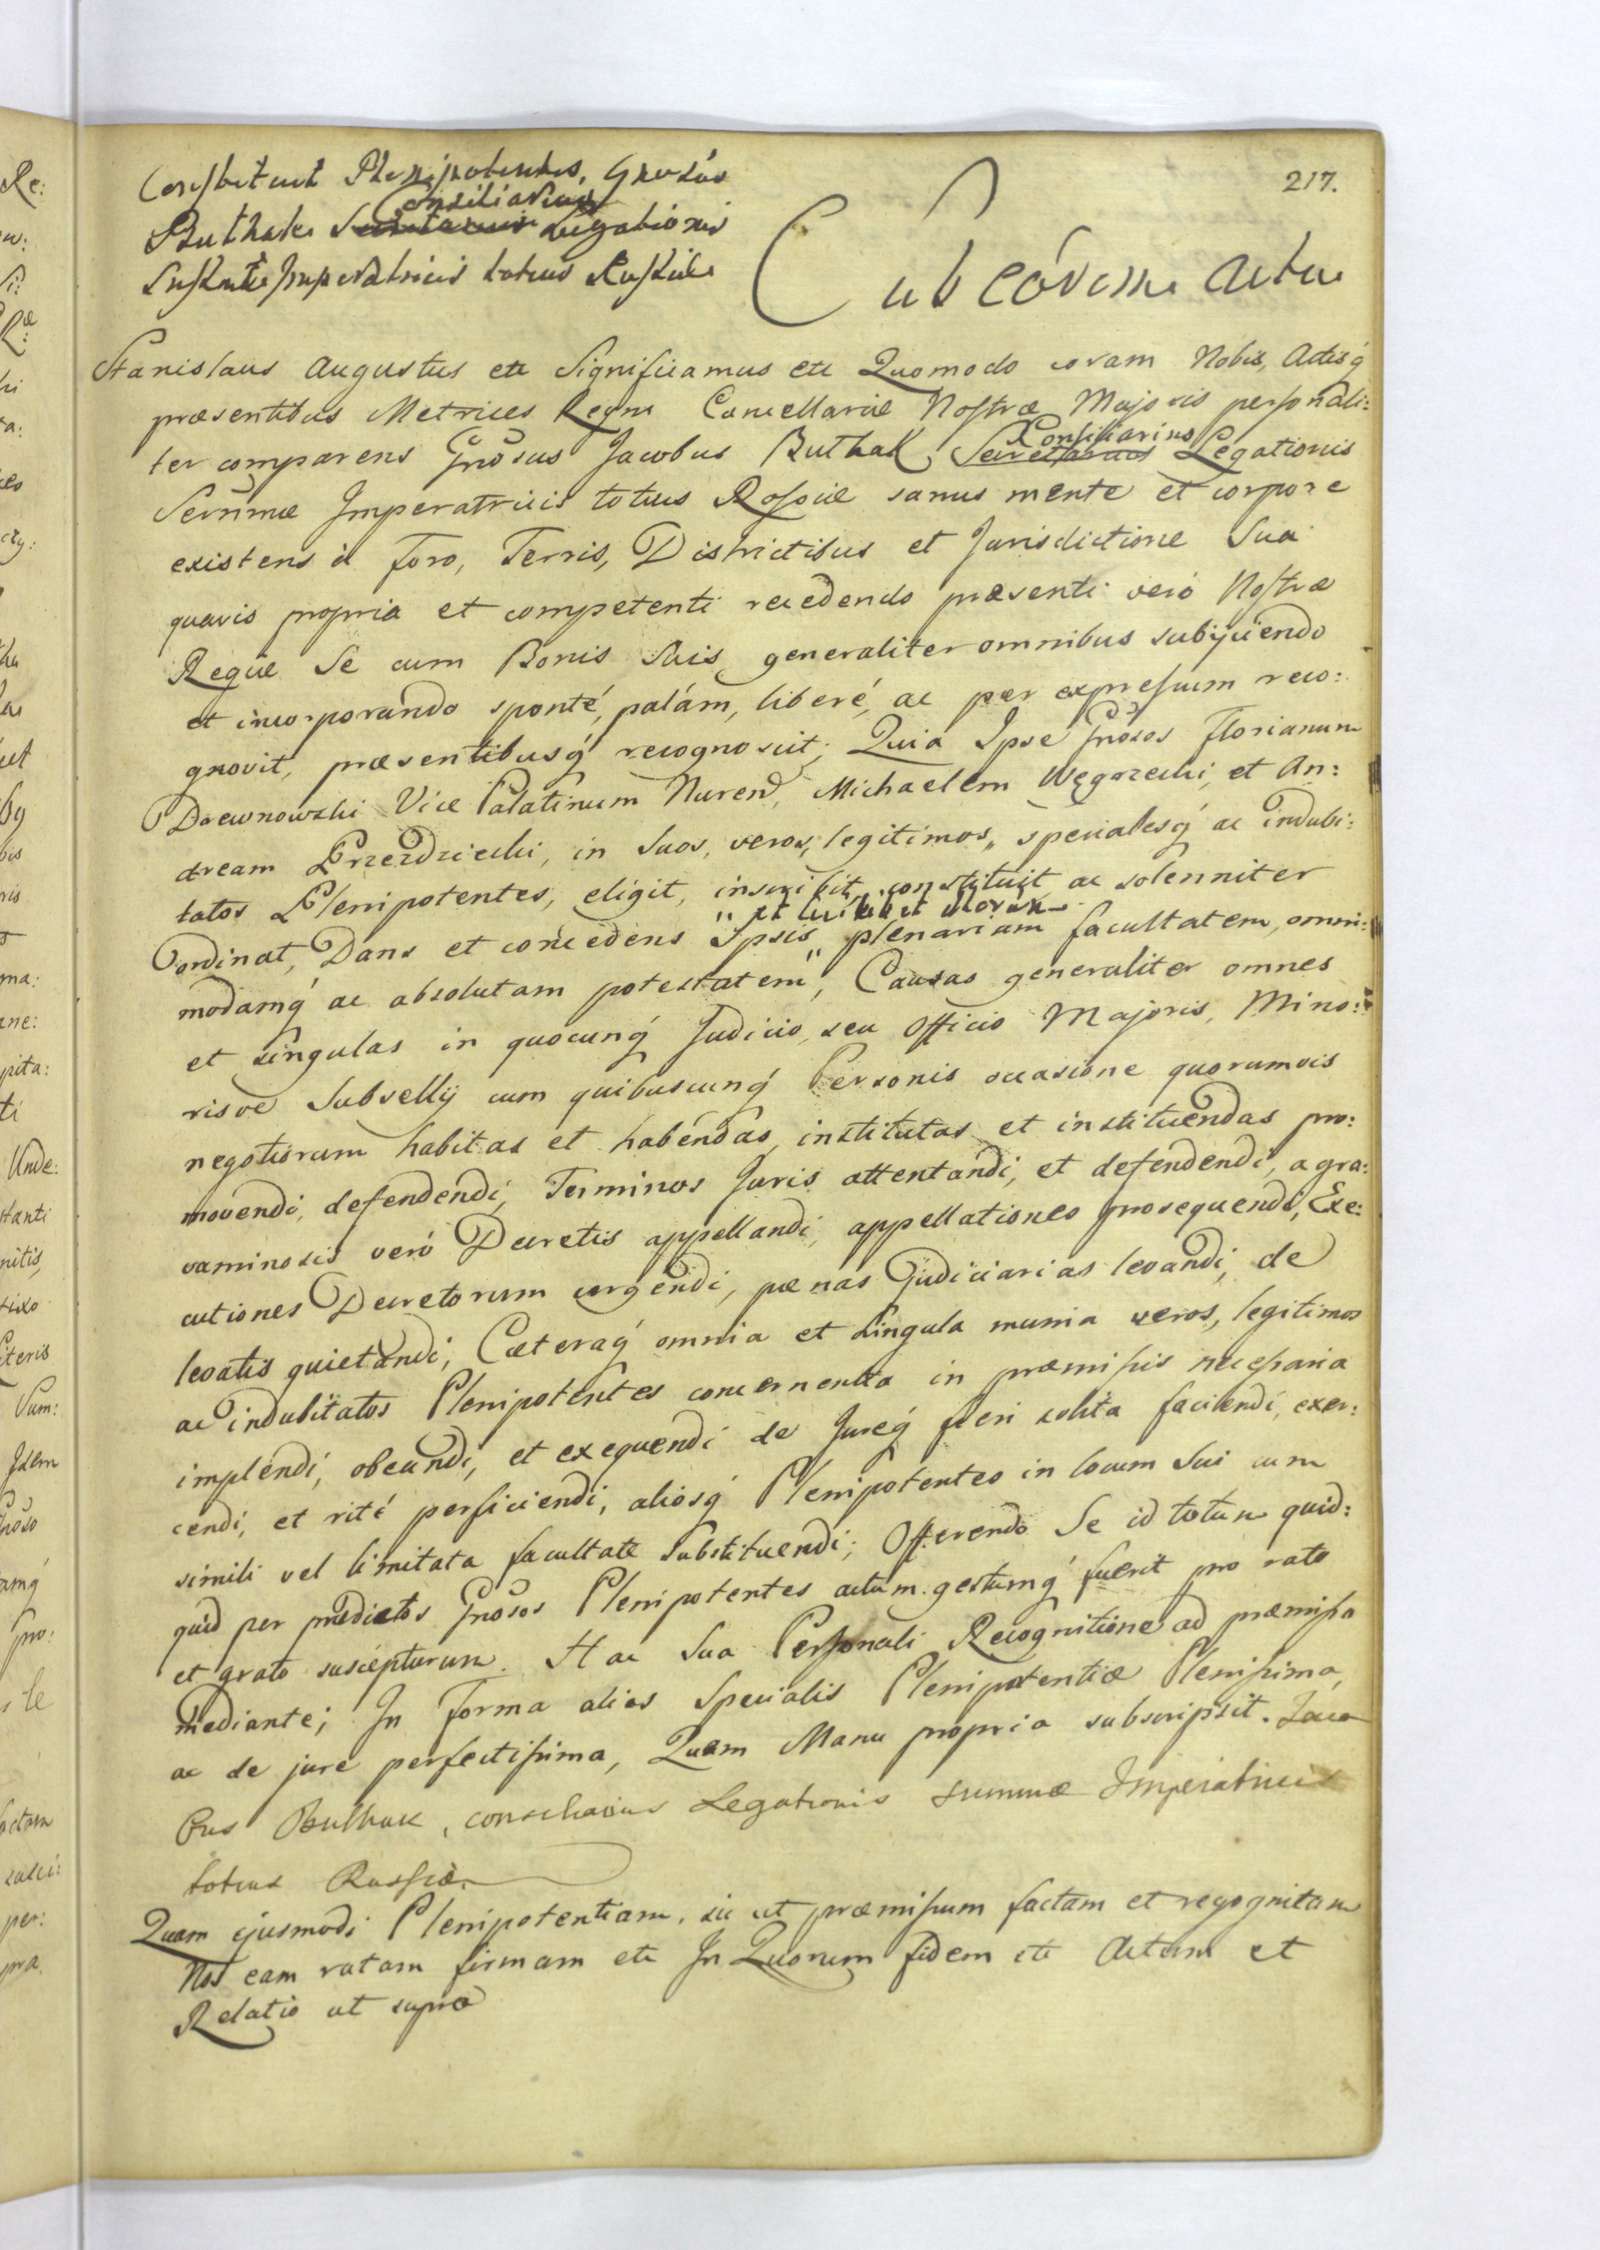 217.
Constituit Plenipotentes, Gnosus
Consiliarius
Buthak Secretarius Legationis
Imperatricis totius Russiae
Sub eodem actu
Stanislaus Augustus etc Significamus etc Quomodo coram Nobis, Actisq́
præsentibus Metrices Regni Cancellariæ Nostræ Majoris personali:
Consiliarius
ter comparens Gnosus Jacobus Buthak Secretarius Legationis
Serñmæ Imperatricis totius Rossiæ sanus mente et corpore
existens à foro, Terris, Districtibus et Jurisdictione Sua
quavis propria et competenti recedendo præsenti veró Nostræ
Regiæ Se cum Bonis Suis generaliter omnibus subijciendo
et incorporando sponté, palám, liberé, ac per expressum reco:
gnovit, præsentibusq́ recognoscit; Quia Ipse Gnosos Florianum
Drewnowski Vice Palatinum Nuren, Michaelem Węgorzecki, et An:
dream Przezdziecki, in Suos, veros, legitimos,, specialesq́ ac indubi:
tatos Plenipotentes, eligit, inscribit, constituit ac solenniter
" et cuilibet eorum
ordinat, Dans et concedens Ipsis " plenariam facultatem, omni:
modamq́ ac absolutam potestatem, Causas generaliter omnes
et singulas in quocunq́ Judicio, seu Officio Majoris, Mino:
risve Subsellij cum quibuscunq́ Personis occasione quorumvis
negotiorum habitas et habendas, institutas et instituendas pro:
movendi, defendendi, Terminos Juris attentandi, et defendendi, a gra:
vaminosis veró Decretis appellandi, appellationes prosequendi, Exe:
cutiones Decretorum urgendi, pœnas judiciarias levandi, de
levatis quietandi, Cæteraq́ omnia et singula munia veros, legitimos
ac indubitatos Plenipotentes concernentia in præmissis necessaria
implendi, obeundi, et exequendi de Jureq́ fieri solita faciendi, exer:
cendi, et rité perficiendi, aliosq́ Plenipotentes in locum Sui cum
simili vel limitata facultate Substituendi; Offerendo Se id totum quid:
quid per prædictos Gnosos Plenipotentes actum gestumq́ fuerit pro rato
et grato suscepturum. Hac Sua Personali Recognitione ad præmissa
mediante; In Forma alias Specialis Plenipotentiæ Plenissima,
ac de jure perfectissima, Quam Manu propria subscripsit. Jaco
bus Bulhak, consiliarius Legationis Imperatricis
totius Russiæ
Quam ejusmodi Plenipotentiam, sic ut præmissum factam et recognitam
Nos eam ratam firmam etc In Quorum fidem etc Actum et
Relatio ut supra